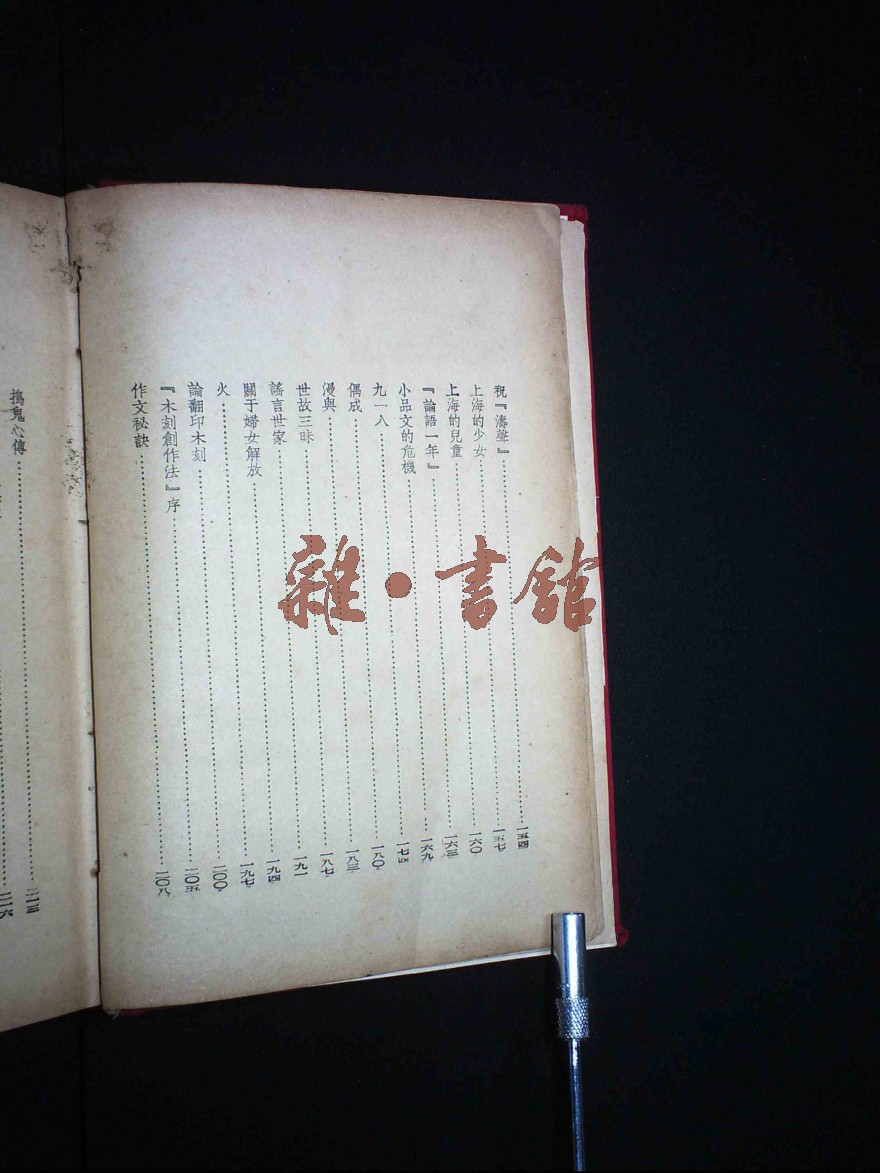 祝『濤聲』……一五四
上海的少女……一五七
上海的兒童……一六〇
『論語一年』……一六三
小品文的危機……一六九
九一八……一七四
偶成……一八〇
漫與……一八三
世故三昧……一八七
謠言世家……一九一
關于婦女解放……一九四
火……一九七
論翻印木刻……二〇〇
『木刻創作法』序……二〇五
作文秘訣……二〇八
搗鬼心傳……二一三
二一六
雜·書館